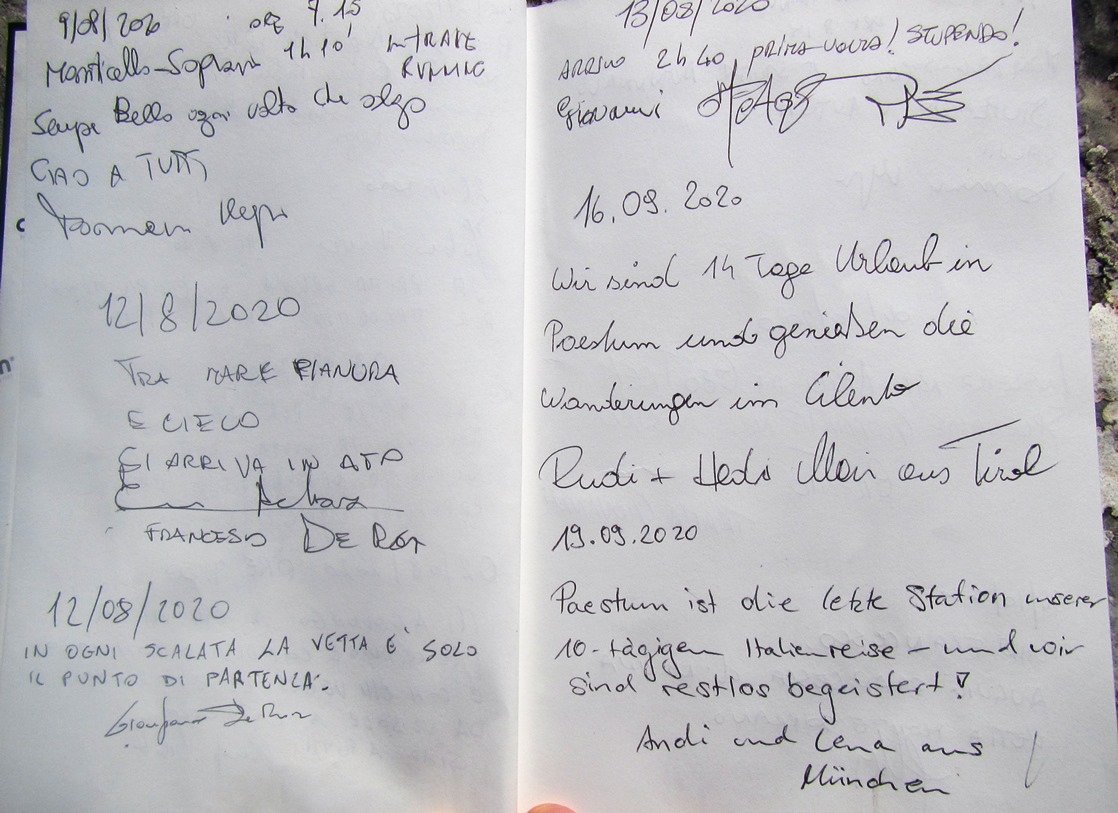 9/08/2020 ore 7.15
Monticello-Soprano 1h 10'
Sempre Bello ogni volta che salgo
CIAO A TUTTI
12/8/2020
TRA MARE PIANURA
E CIELO
SI ARRIVA IN
FRANCESCO DE
12/08/2020
IN OGNI SCALATA LA VETTA E' SOLO
IL PUNTO DI PARTENZA.
13/08/2020
ARRIVO 2h 40 PRIMA VOLTA! STUPENDO!
Giovanni
16.09.2020
Wir sind 14 Tage Urlaub in
Paestum und genießen die
Wanderungen im Cilento
Rudi + Hedi Mair aus Tirol
19.09.2020
Paestum ist die letzte Station unserer
10-tägigen Italienreise – und wir
sind restlos begeistert!
Andi und Lena aus
München